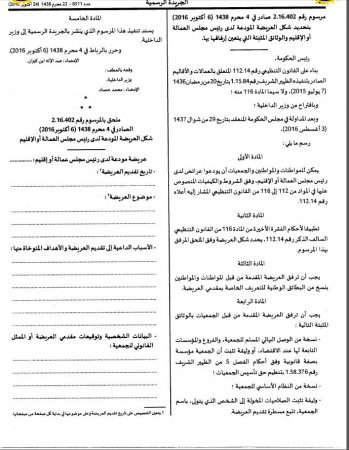 عدد 6511 - 22 محرم 1438 (24 أكتوبر 2016)
الجريدة الرسمية
مرسوم رقم 2.16.402 صادر في 4 محرم 1438 (6 أكتوبر 2016)
بتحديد شكل العريضة المودعة لدى رئيس مجلس العمالة
أو الإقليم والوثائق المثبتة التي يتعين إرفاقها بها.
رئيس الحكومة،
بناء على القانون التنظيمي رقم 112.14 المتعلق بالعمالات والأقاليم
الصادر بتنفيذه الظهير الشريف رقم 1.15.84 بتاريخ 20 من رمضان 1436
(7 يوليو 2015)، ولا سيما المادة 116 منه ؛
وباقتراح من وزير الداخلية ؛
وبعد المداولة في مجلس الحكومة المنعقد بتاريخ 29 من شوال 1437
(3 أغسطس 2016)،
رسم ما يلي :
المادة الأولى
يمكن للمواطنات والمواطنين والجمعيات أن يودعوا عرائض لدى
رئيس مجلس العمالة أو الإقليم، وفق الشروط والكيفيات المنصوص
عليها في المواد من 112 إلى 116 من القانون التنظيمي المشار إليه أعلاه
رقم 112.14.
المادة الثانية
تطبيقا لأحكام الفقرة الأخيرة من المادة 116 من القانون التنظيمي
السالف الذكر رقم 112.14، يحدد شكل العريضة وفق الملحق المرفق
بهذا المرسوم.
المادة الثالثة
يجب أن ترفق العريضة المقدمة من قبل المواطنات والمواطنين
بنسخ من البطائق الوطنية للتعريف الخاصة بمقدمي العريضة.
المادة الرابعة
يجب أن ترفق العريضة المقدمة من قبل الجمعيات بالوثائق
المثبتة التالية :
- نسخة من الوصل النهائي المسلم للجمعية، والفروع والمؤسسات
التابعة لها عند الاقتضاء، أو وثيقة تثبت أن الجمعية مؤسسة
بصفة قانونية وفق أحكام الفصل 5 من الظهير الشريف
رقم 1.58.376 بتنظيم حق تأسيس الجمعيات ؛
- نسخة من النظام الأساسي للجمعية ؛
- وثيقة تثبت الصلاحيات المخولة إلى الشخص الذي يتولى، باسم
الجمعية، تتبع مسطرة تقديم العريضة.
المادة الخامسة
يسند تنفيذ هذا المرسوم الذي ينشر بالجريدة الرسمية إلى وزير
الداخلية.
وحرر بالرباط في 4 محرم 1438 (6 أكتوبر 2016)
الإمضاء : عبد الإله ابن كيران.
وقعه بالعطف :
وزير الداخلية،
الإمضاء : محمد حصاد.
* * *
ملحق بالمرسوم رقم 2.16.402
الصادر في 4 محرم 1438 (6 أكتوبر 2016)
شكل العريضة المودعة لدى رئيس مجلس العمالة أو الإقليم
عريضة مودعة لدى رئيس مجلس عمالة أو إقليم:
- تاريخ تقديم العريضة¹ :
- موضوع العريضة¹ :
- الأسباب الداعية إلى تقديم العريضة والأهداف المتوخاة منها :
- البيانات الشخصية وتوقيعات مقدمي العريضة أو الممثل
القانوني للجمعية :
1 يتعين التنصيص على تاريخ تقديم العريضة وعلى موضوعها في بداية كل صفحة من صفحاتها.